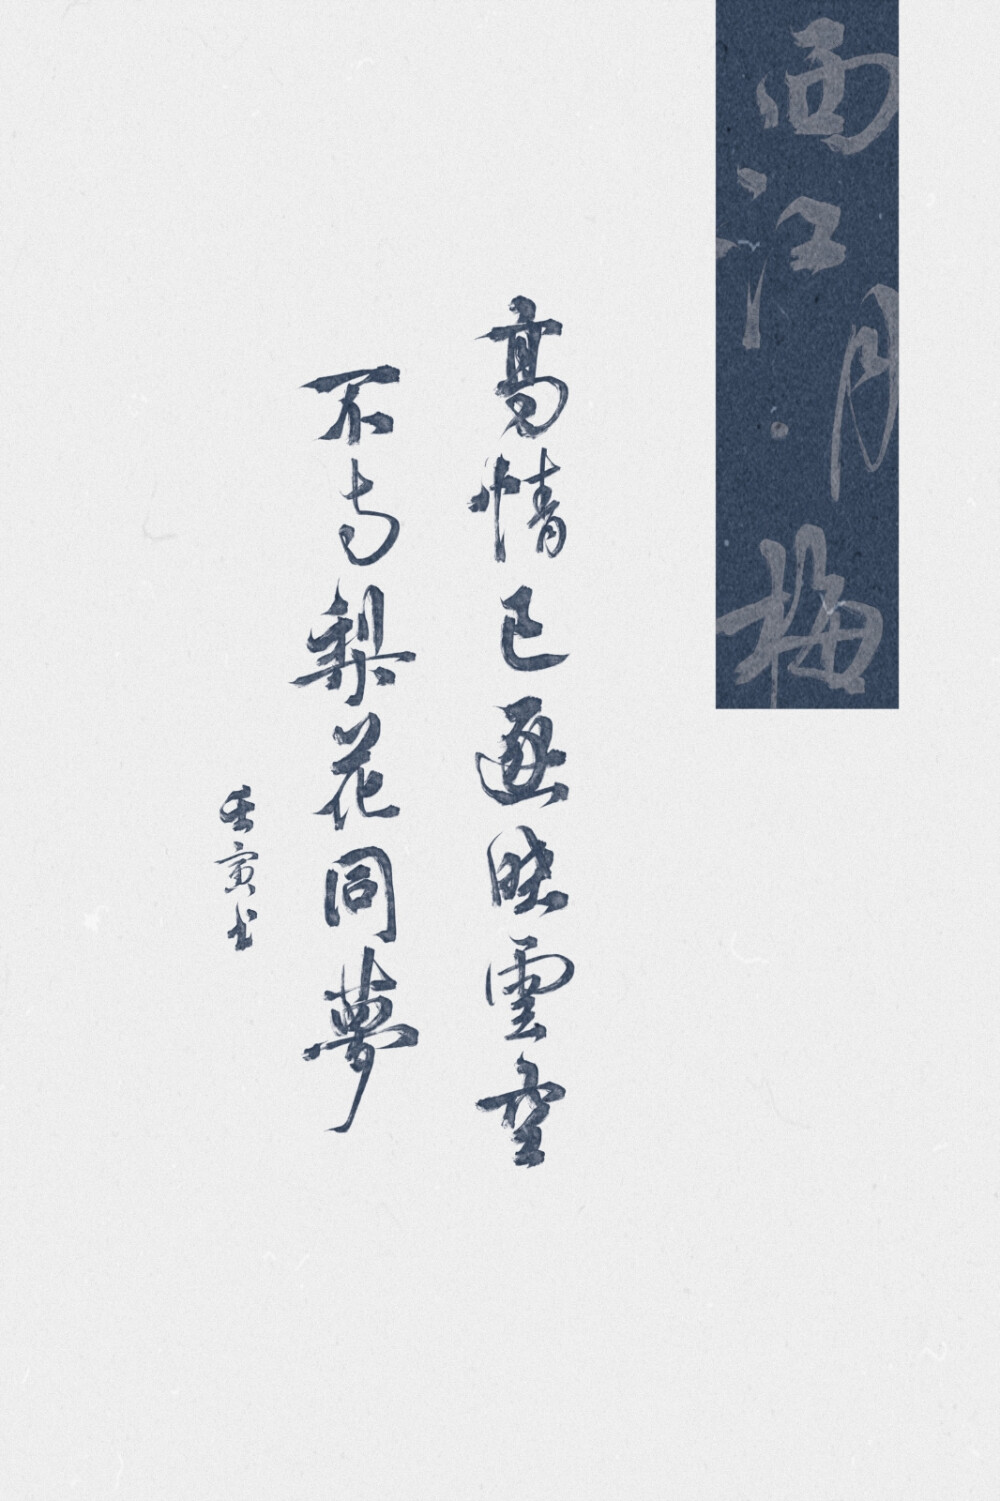 西江月·梅
高情已逐曉雲空
不与梨花同夢
壬寅书